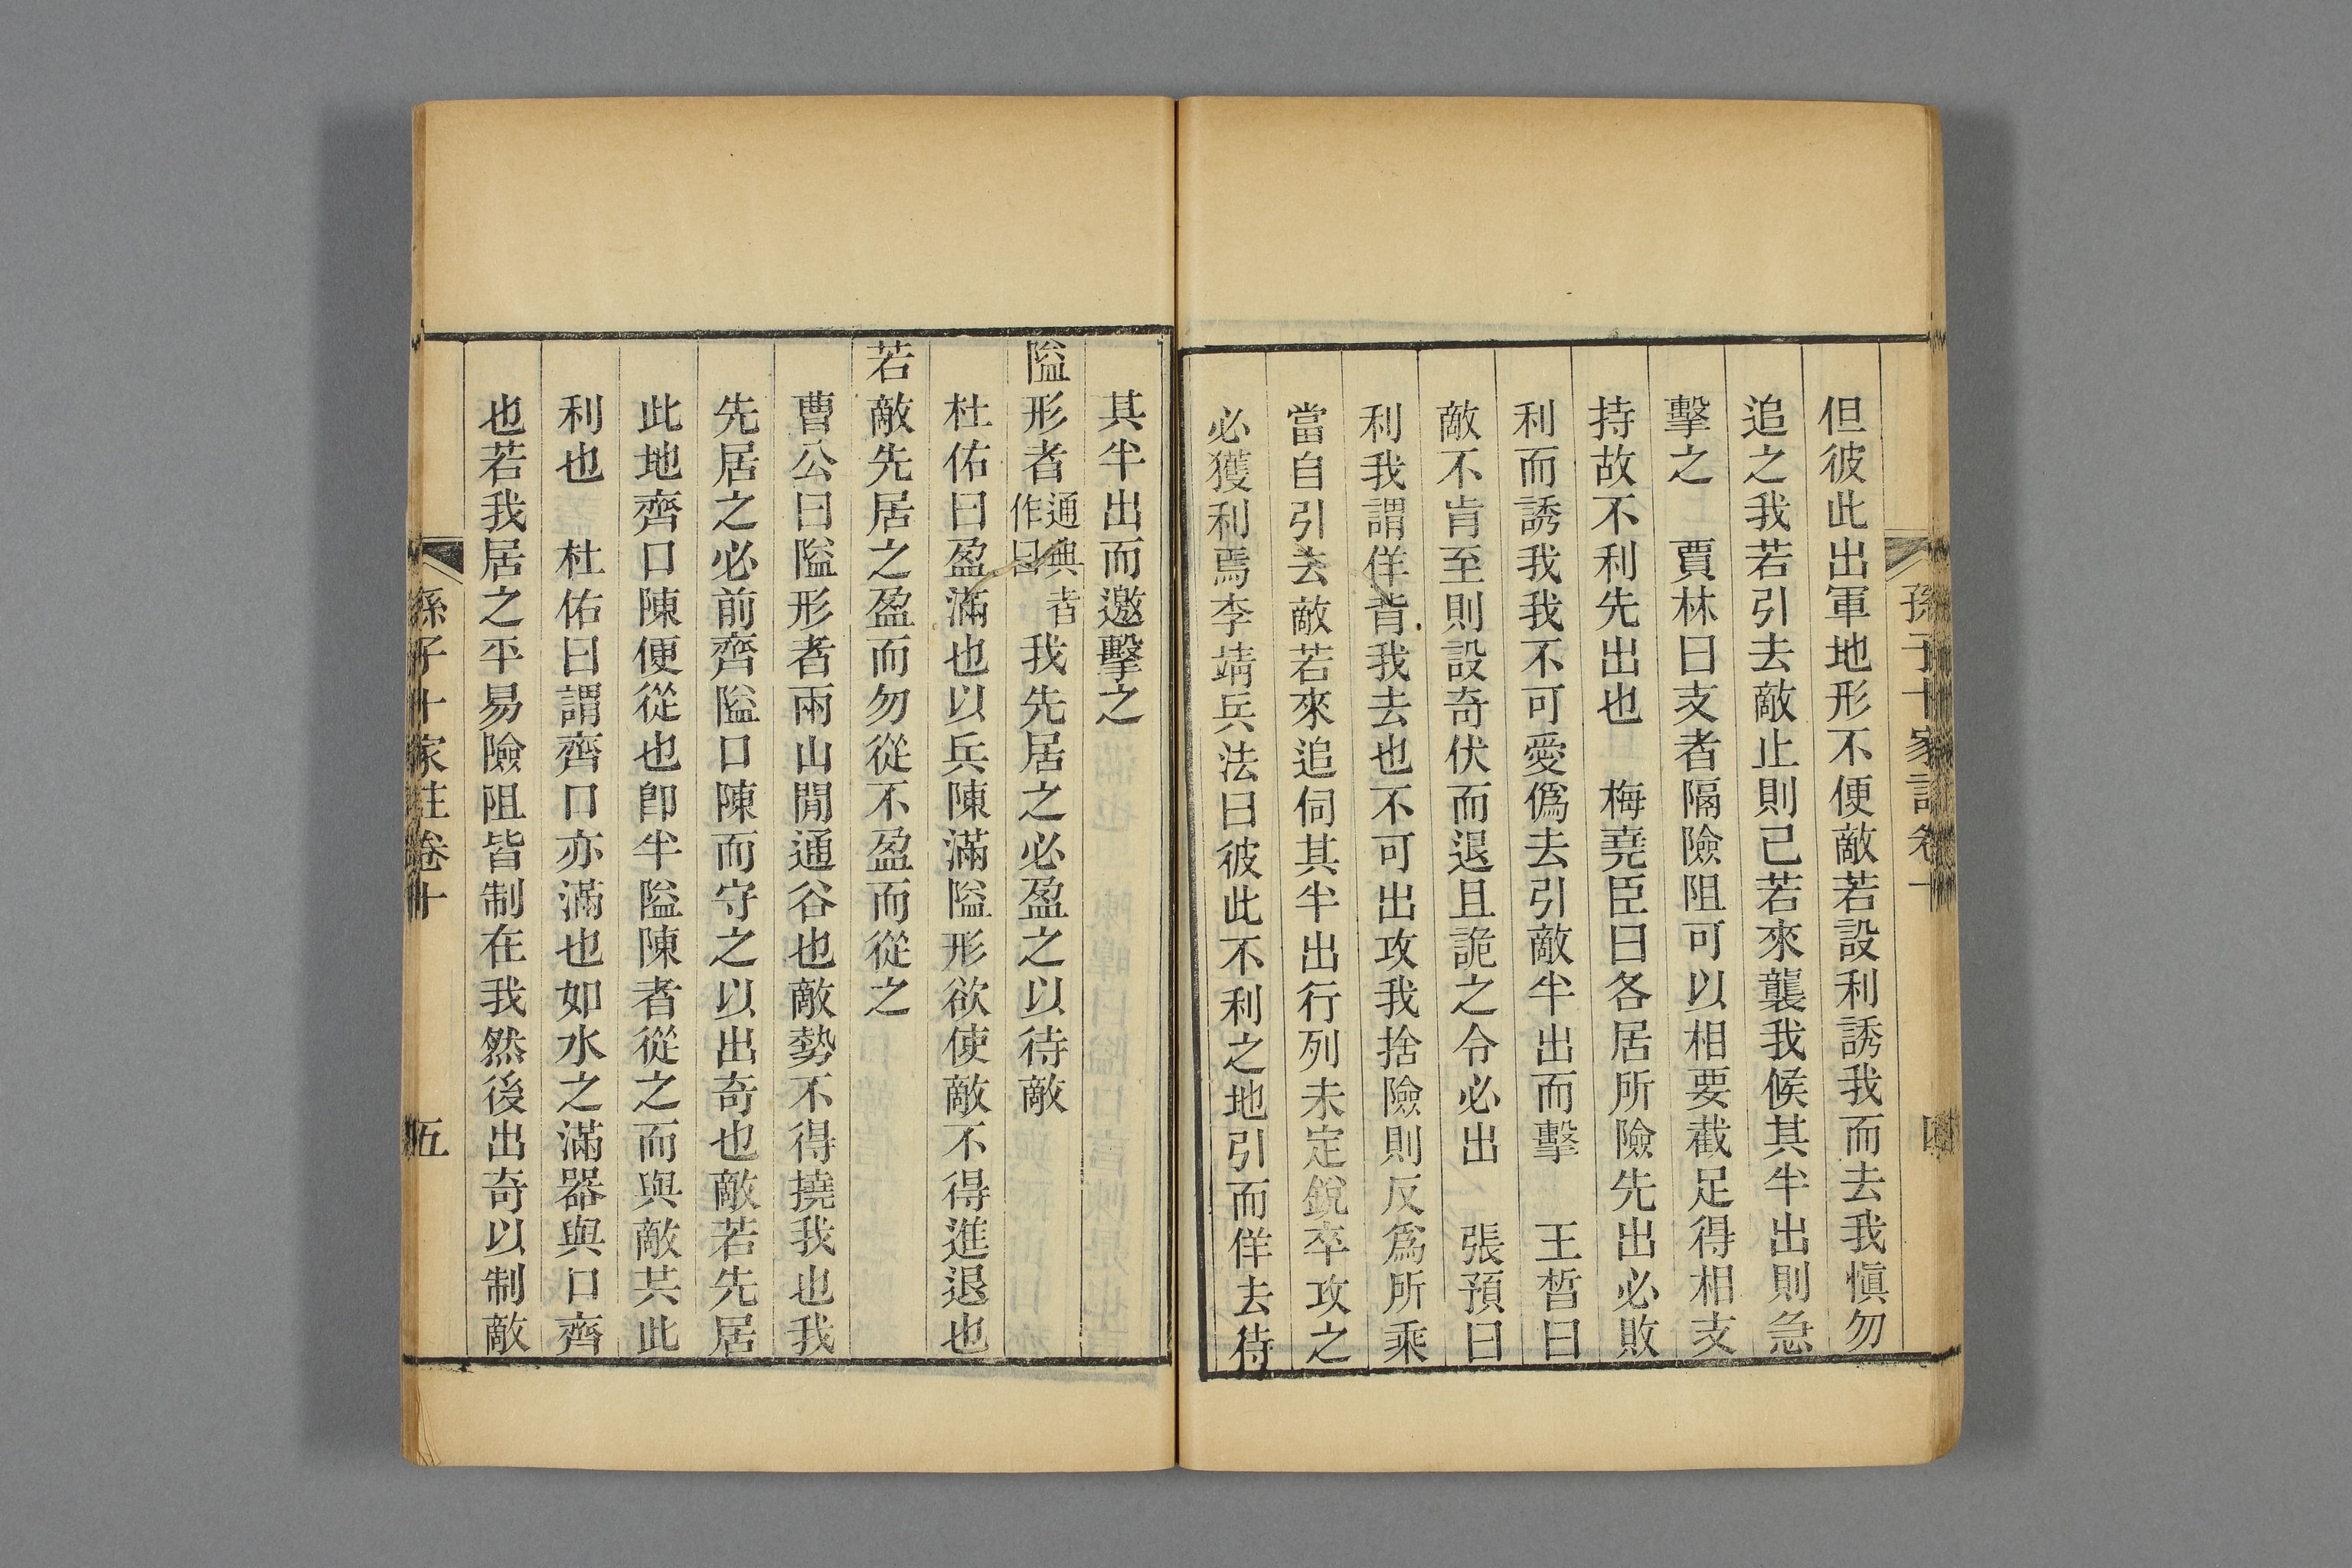 孫子十家註卷十
四
但彼此出軍地形不便敵若設利誘我而去我慎勿
追之我若引去敵止則已若來襲我候其半出則急
擊之　賈林曰支者隔險阻可以相要截足得相支
持故不利先出也　梅堯臣曰各居所險先出必敗
利而誘我我不可愛偽去引敵半出而擊　王晳曰
敵不肯至則設奇伏而退且詭之令必出　張預曰
利我謂佯背我去也不可出攻我捨險則反為所乘
當自引去敵若來追伺其半出行列未定銳卒攻之
必獲利焉李靖兵法曰彼此不利之地引而佯去待
其半出而邀擊之
隘形者通典者作曰我先居之必盈之以待敵
杜佑曰盈滿也以兵陳滿隘形欲使敵不得進退也
若敵先居之盈而勿從不盈而從之
曹公曰隘形者兩山閒通谷也敵勢不得撓我也我
先居之必前齊隘口陳而守之以出奇也敵若先居
此地齊口陳便從也卽半隘陳者從之而與敵共此
利也　杜佑曰謂齊口亦滿也如水之滿器與口齊
也若我居之平易險阻皆制在我然後出奇以制敵
孫子十家註卷十
五